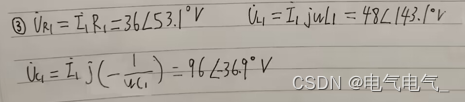 ③ U̇R1=İ1R1=36∠53.1°V U̇L1=İ1jωL1=48∠143.1°V
U̇C1=İ1j(-1/ωC1)=96∠-36.9°V
CSDN @电气电气_